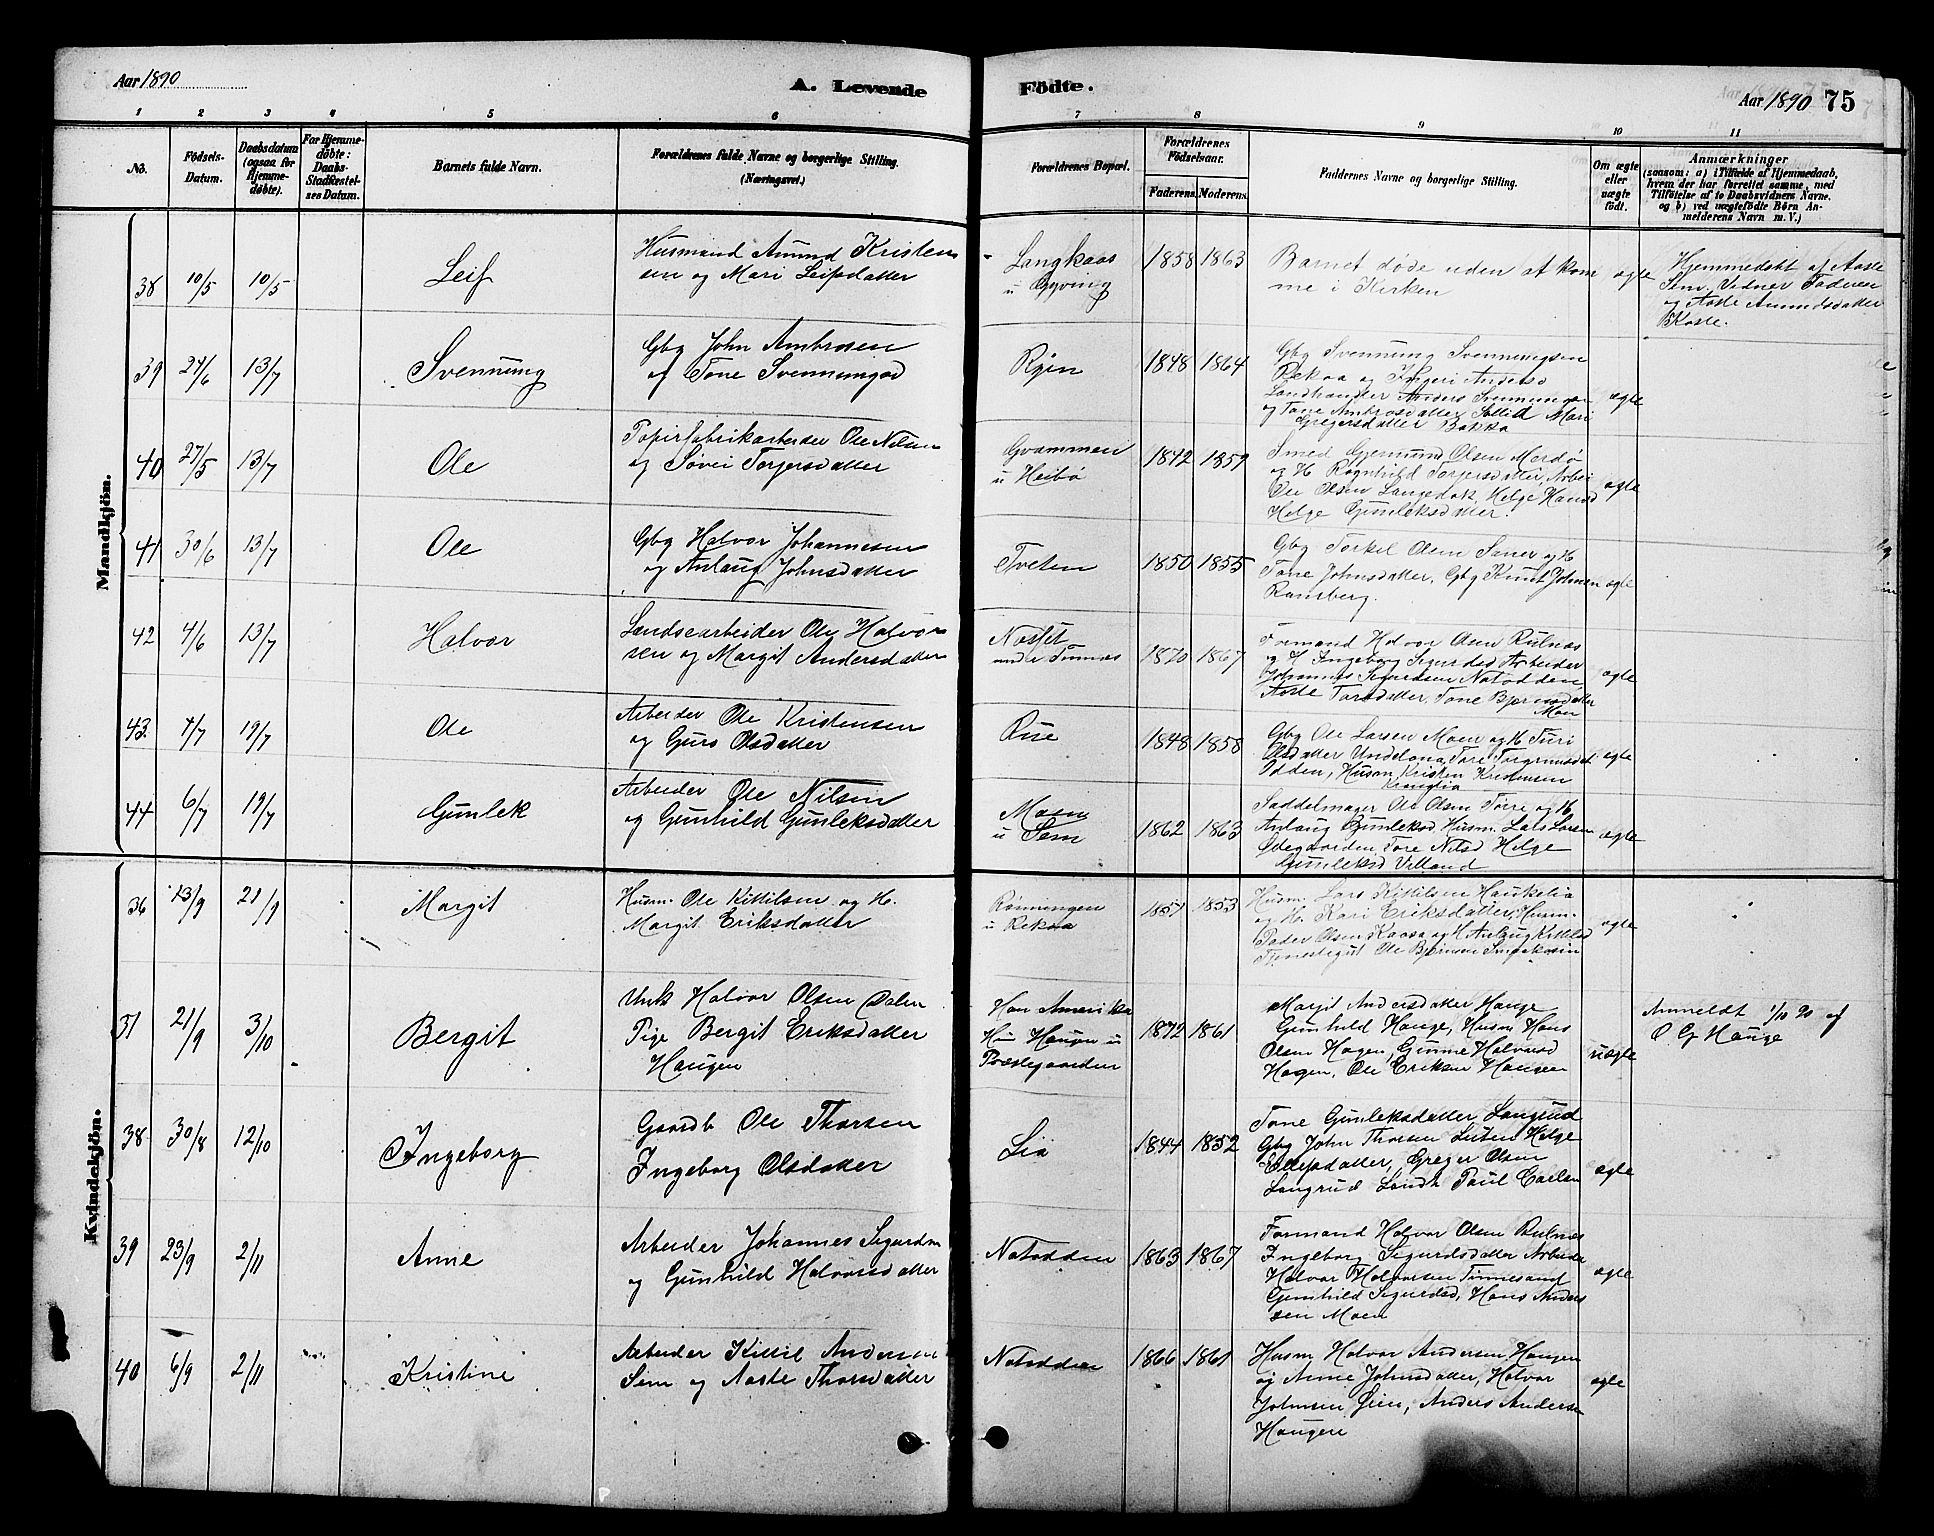 Aar 1890
A. Levende
Födte.
Aar 1890 75
1 2 3 4 5 6 7 8 9 10 11
No.
Födsels-
Datum.
Daabsdatum
(ogsaa for
Hjemme-
döbte).
For Hjemme-
döbte:
Daabs-
Stadfæstel-
ses Datum.
Barnets fulde Navn.
Forældrenes fulde Navne og borgerlige Stilling.
(Næringsvei.)
Forældrenes Bopæl.
Forældrenes
Födselsaar.
Faderens. Moderens.
Faddernes Navne og borgerlige Stilling.
Om ægte
eller
uægte
födt.
Anmærkninger
(saasom: a) i Tilfælde af Hjemmedaab,
hvem der har forrettet samme, med
Tilföielse af to Daabsvidners Navne.
og b) ved uægtefödte Börn An-
melderens Navn m. V.)
Mandkjön.
38 10/5 10/5 Leif
Husmand Amund Kristen
sen og Mari Leifsdatter
Langkaas
u Gyving
1858 1863
Barnet døde uden at kom
me i Kirken
ægte
Hjemmedøbt af Aaste
Sem, Vidner Faderen
og Aaste Amundsdatter
Kaste.
39 24/6 13/7 Svennung
Gbg John Ambrosen
og Tone Svennungsd
Ryin
1848 1864
Gbg Svennung Svennungsen
Rekaa og Ingeri Andersd
Landhandler Anders Svennungsen
og Tone Ambrosdatter Mari
Gregersdatter Bakka
ægte
40 27/5 13/7 Ole
Papirfabrikarbeider Ole Nilsen
og Søvei Torjersdatter
Gvammen
u Heibø
1842 1857
Smed Gjermund Olsen Mordø
og H. Ragnhild Torjersdatter, Arbei
Ole Olsen Langedok, Helge Hansd
Helge Gunleksdatter.
ægte
41 30/6 13/7 Ole
Gbg Halvor Johannesen
og Anlaug Johnsdatter
Tveten
1850 1855
Gbg Torkel Olsen Saner og H
Tone Johnsdatter, Gbg Knut Johnsen
Ramberg.
ægte
42 4/6 13/7 Halvor
Landsearbeider Ole Halvor
sen og Margit Andersdatter
Nasset
under Tinnæs
1870 1867
Formand Halvor Olsen Rulnæs
og H Ingeborg Sigurdsd Arbeider
Johannes Sigurdsen Notodden,
Aaste Torsdatter, Tone Bjørnsdatter
Moen
ægte
43 4/7 19/7 Ole
Arbeider Ole Kristensen
og Guro Olsdatter
Rue
1848 1858
Gbg Ole Larsen Moen og H Turi
Olsdatter
Odden, Husm Kristen Kristensen
ægte
44 6/7 19/7 Gunlek
Arbeider Ole Nilsen
og Gunhild Gunleksdatter
Moen
u Sem
1862 1863
Saddelmager Ole Olsen Torre og H
Anlaug Gunleksd, Husm. Lars Larsen
Ødegaarden, Tore Nilsd Helge
Gunleksd Villand
ægte
Kvindekjön.
36 13/9 21/9 Margit
Husm. Ole Kittilsen og H.
Margit Eriksdatter
Rønningen
u Rekaa
1857 1853
Husm. Lars Kittilsen Haukelia
og H. Kari Eriksdatter, Husm-
Peder Olsen Kaasa og H Anlaug Kittilsd
Ole Bjørnsen
ægte
37 21/9 3/10 Bergit
Unk Halvor Olsen Dalen
Pige Bergit Eriksdatter
Haugen
Han Amerika
Hun Haugen u
Præstegaarden
1872 1861
Margit Andersdatter Hauge
Gunhild Hauge, Husm Hans
Olsen Hagen, Gunne Halvorsd
Hagen, Ole Eriksen Haugen
uægte
Anmeldt 1/10 90 af
O. G. Hauge
38 30/8 12/10 Ingeborg
Gaardb Ole Thorsen
Ingeborg Olsdatter
Lia
1844 1852
Tone Gunleksdatter Langrud
Gbg John Thorsen Luten Helge
Ellefsdatter, Greger Olsen
Langrud Landh Paul Carlsen
ægte
39 23/9 2/11 Anne
Arbeider Johannes Sigurdsen
og Gunhild Halvorsdatter
Notodden
1863 1867
Formand Halvor Olsen Rulnæs
Ingeborg Sigurdsdatter Arbeide
Halvor Halvorsen Tinnesand
Gunhild Sigurdsd, Hans Anders
sen Moen
ægte
40 6/9 2/11 Kristine
Arbeider Kittil Andersen
Sem og Aaste Thorsdatter
Notodden
1866 1861
Husm Halvor Andersen Haugen
og Anne Johnsdatter, Halvor
Johnsen Øien, Anders Andersen
Haugen
ægte